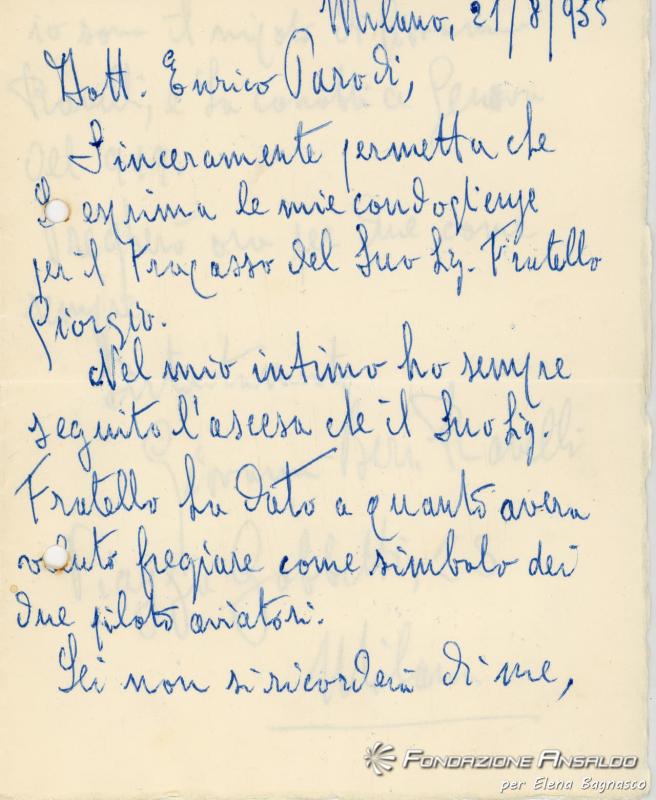 Milano, 21/8/955
Dott. Enrico Parodi,
Sinceramente permetta che
Le esprima le mie condoglienze
per il trapasso del Suo Sig. Fratello
Giorgio.
Nel mio intimo ho sempre
seguito l'ascesa che il Suo Sig.
Fratello ha dato a quanto aveva
voluto fregiare come simbolo dei
due piloto aviatori.
Lei non si ricorderà di me,
FONDAZIONE ANSALDO
per Elena Bagnasco